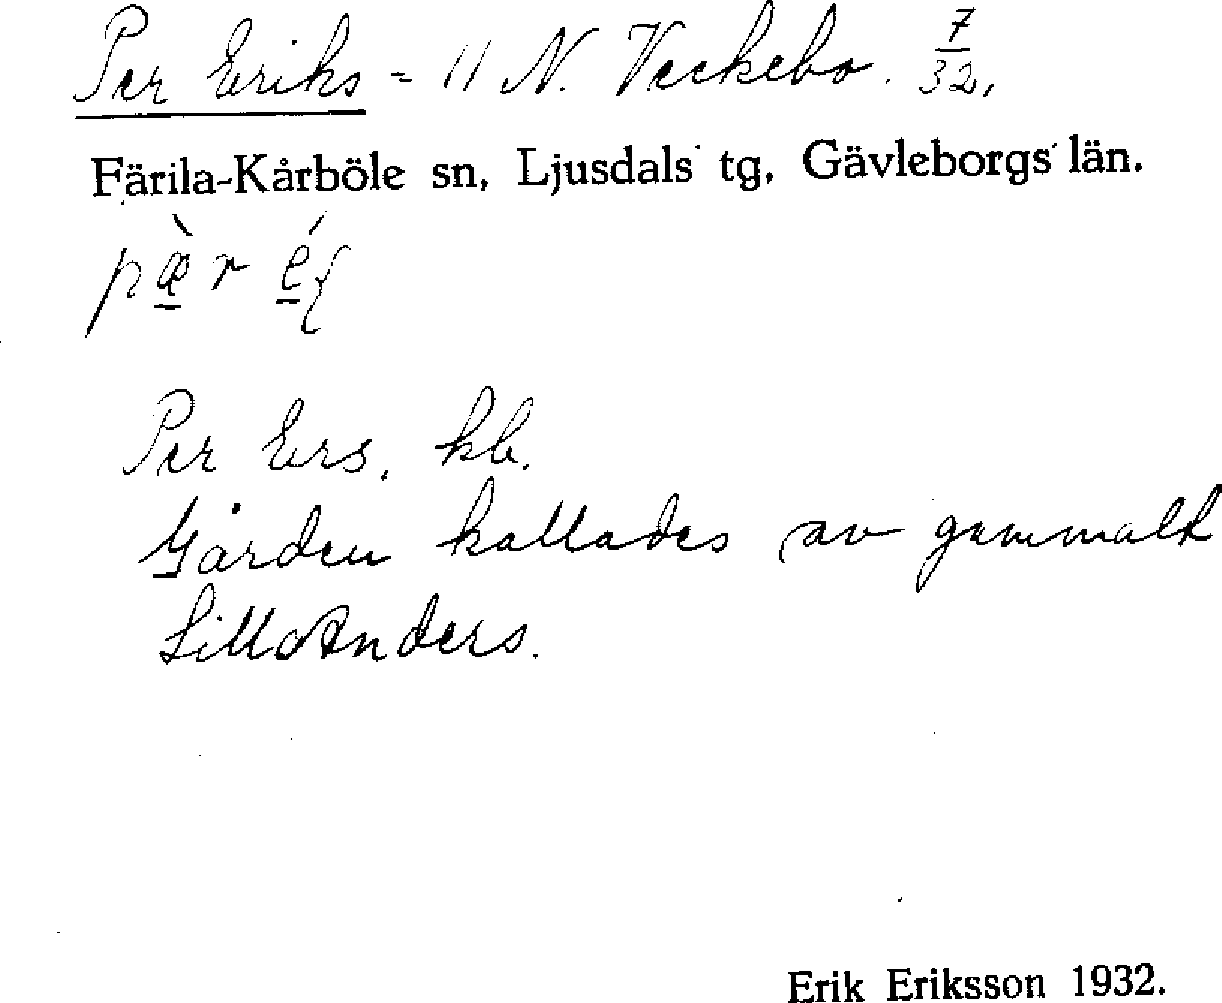 Per Eriks = 11 N. Veckebo. 7/32.
Färila-Kårböle sn, Ljusdals tg, Gävleborgs län.
pæ̀r éʃ
Per Ers. kb.
Gården kallades av gammalt
LilloAnders.
Erik Eriksson 1932.